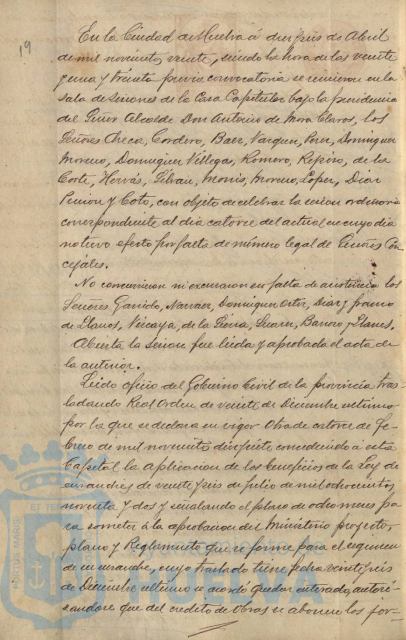 19
En la Ciudad de Huelva á diez y seis de Abril
de mil novecientos veinte, siendo la hora de las veinte
y una y treinta previa convocatoria se reunieron en la
sala de sesiones de la Casa Capitular bajo la presidencia
del Señor Alcalde Don Antonio de Mora Claros, los
Señores Checa, Cordero, Baez, Vazquez, Perez, Dominguez
Moreno, Dominguez Villegas, Romero, Rofino, de la
Corte, Hervás, Silvan, Monis, Moreno, Lopez, Diaz
y Coto, con objeto de celebrar la sesion ordinaria
correspondiente al dia catorce del actual en cuyo dia
no tuvo efecto por falta de número legal de Señores Con
cejales.
No concurrieron ni excusaron su falta de asistencia los
Señores Garrido, Narvaez, Dominguez Ortiz, Diaz y Franco
de Llanos, Vizcaya, de la Suarez, y Llanes.
Abierta la sesion fue leida y aprobada el acta de
la anterior.
Leido oficio del Gobierno Civil de la provincia tras
ladando Real Orden de veinte de Diciembre ultimo
por la que se declara en vigor Otra de catorce de Fe-
brero de mil novecientos diez y siete, concediendo á esta
Capital la aplicacion de los beneficios de la Ley de
ensanches de veinte y seis de Julio de mil ochocientos
noventa y dos y señalando el plazo de ocho meses pa
ra someter á la aprobacion del Ministerio proyecto,
plano y Reglamento que se forme para el regimen
de ensanche, cuyo traslado tiene fecha veinte y seis
de Diciembre ultimo se acordó quedar enterado, autori-
zandose que del credito de Obras se abonen los for-
ET TERRAE
PORTUS MARIS
HUELVA